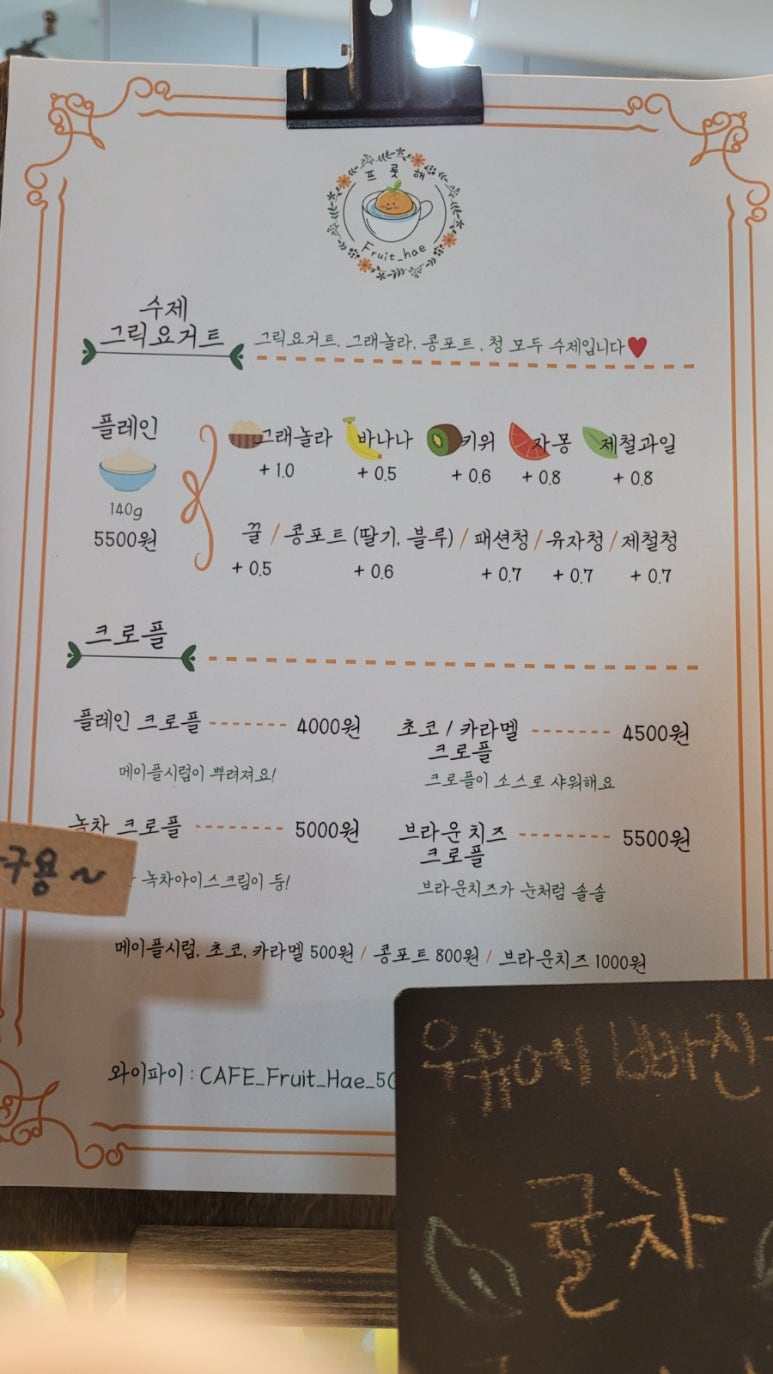 프룻해
Fruit_hae
수제
그릭요거트
그릭요거트, 그래놀라, 콩포트, 청 모두 수제입니다
플레인
140g
5500원
그래놀라 바나나 키위 자몽 제철과일
+ 1.0 + 0.5 + 0.6 + 0.8 + 0.8
꿀 / 콩포트 (딸기, 블루) / 패션청 / 유자청 / 제철청
+ 0.5 + 0.6 + 0.7 + 0.7 + 0.7
크로플
플레인 크로플 -------- 4000원
메이플시럽이 뿌려져요!
초코 / 카라멜 -------- 4500원
크로플
크로플이 소스로 샤워해요
녹차 크로플 --------- 5000원
녹차아이스크림이 둥!
브라운치즈 --------- 5500원
크로플
브라운치즈가 눈처럼 솔솔
구용~
메이플시럽, 초코, 카라멜 500원 / 콩포트 800원 / 브라운치즈 1000원
와이파이 : CAFE_Fruit_Hae_5G
우유에 빠진
귤차